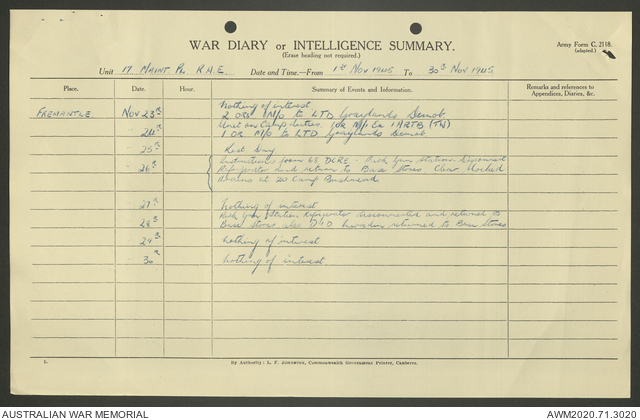 WAR DIARY or INTELLIGENCE SUMMARY.
(Erase heading not required.)
Army Form C. 2118.
(adapted.)
Unit 17 Maint Pl. R.A.E. Date and Time.—From 1st Nov 1945 To 30th Nov 1945
Place. Date. Hour. Summary of Events and Information. Remarks and references to Appendices, Diaries, &c.
FREMANTLE. NOV 23rd Nothing of interest
2 ORs M/O to LTD Graylands Demob.
24th Unit on Camp duties 1 OR M/I Ex 1 ARTB (TW)
1 OR M/O to LTD Graylands Demob.
25th Rest Day
26th Instructions from 65 DCRE - Rich Gun Station Disconnect
Refrigerator and return to Base Stores Clear blocked
drains at 20 Camp Bushmead
27th Nothing of interest
28th Rich Gun Station Refrigerator disconnected and returned to
Base Stores also returned to Base Stores
29th Nothing of interest
30th Nothing of interest.
By Authority: L. F. Johnston, Commonwealth Government Printer, Canberra.
AUSTRALIAN WAR MEMORIAL
AWM2020.71.3020